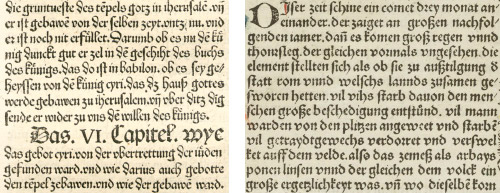 die gruntueste des tēpels gotz in iherusalē. vij
er ist gebawē von der selben zeyt. vntz nu. vnd
er ist noch nit erfüllet. Darumb ob es nu dē kü
nig dunckt gut er zel in dē geschiht des buchs
des kūnigs. das do ist in babilon. ob es sey ge=
heyssen von dē künig cyri. das dz hauß gottes
werde gebawen zu iherusalem. vij vber ditz dig
sende er wider zu vns dē willen des künigs.
Das. VI. Capitel. wye
das gebot cyri. von der vbertrettung der iüden
gefunden ward. vnd wie darius auch gebotte
den tēpel zebawen. vnd wie der gebawē ward.
Diser zeit schine ein comet drey monat an
einander. der zaiget an großen nachfol
genden iamer. dañ es komen groß regen vnnd
thonrsleg. der gleichen vormals vngesehen. die
element stellten sich als ob sie zu außtilgung d̄
statt rom vnnd welschs lannds zusamen ge
sworen hetten. vil vihs starb dauon den men
schen große beschedigung entstünd. vil mann
warden von den plitzen angeweet vnd starbē
vil getraydtgewechs verdorret vnd verswel
cket auff dem velde. also das zemeß als arbays
ponen linsen vnnd der gleichen dem volck ein
große ergetzlichkeyt was. vñ wo dieselbē kor